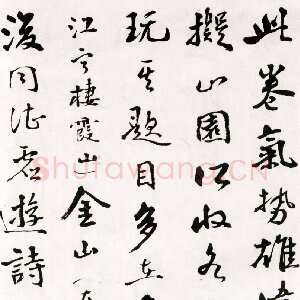 此卷氣勢雄
擬山園所收各
玩其題目多在
江寧棲霞山金山
遊詩
Shufawang.CN